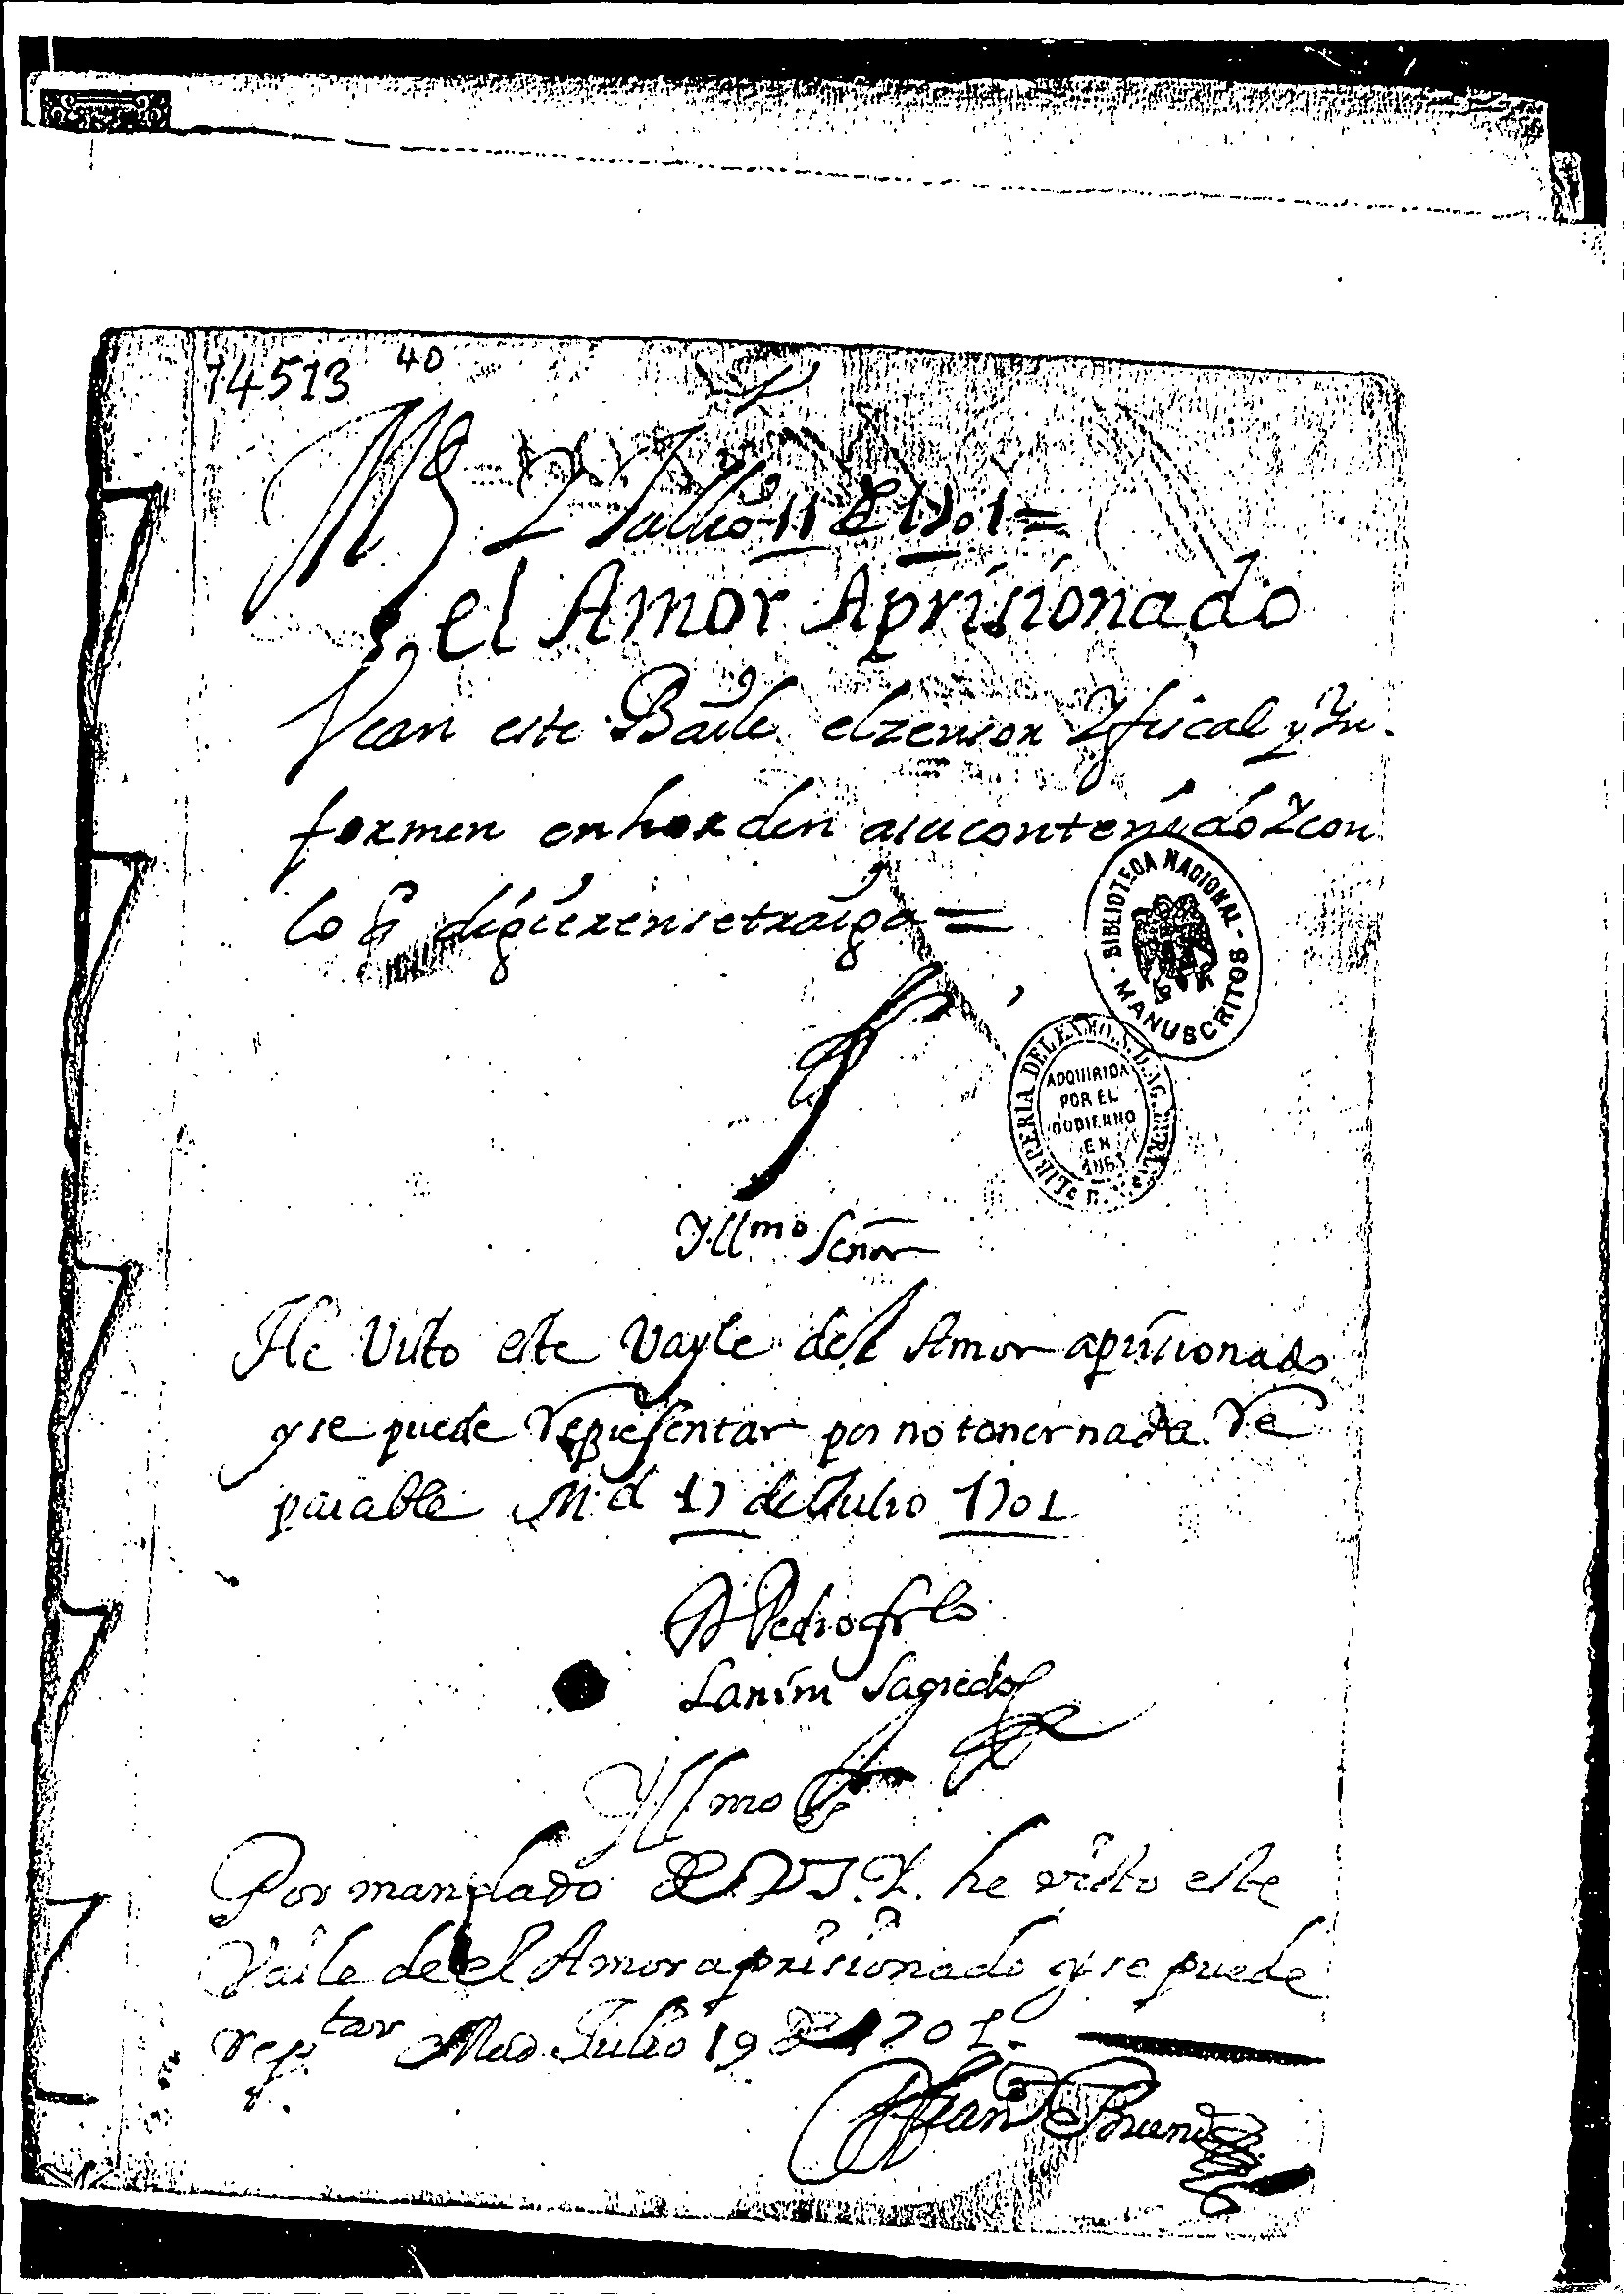 14513 40
Md y Jullio 11 de 1701 =
el Amor Aprisionado
Vean este Baile el zensor y fiscal y Yn
formen en horden a su contenido y con
lo q̃ digeren se traiga =
BIBLIOTECA NACIONAL - MANUSCRITOS
LIBRERIA DEL EXMO. S. D. AG. DURAN
ADQUIRIDA
POR EL
GOBIERNO
EN
1863
Yllmo Señor
He Visto este Vayle del Amor aprisionado
y se puede representar por no tener nada Re
parable Md 17 de Julio 1701
D Pedro frco
Lanini Sagredo
Yllmo Sr
Por mandado de V. S. Y. he visto este
Vaile de el Amor aprisionado y se puede
reptar Mad Julio 19 de 1701.